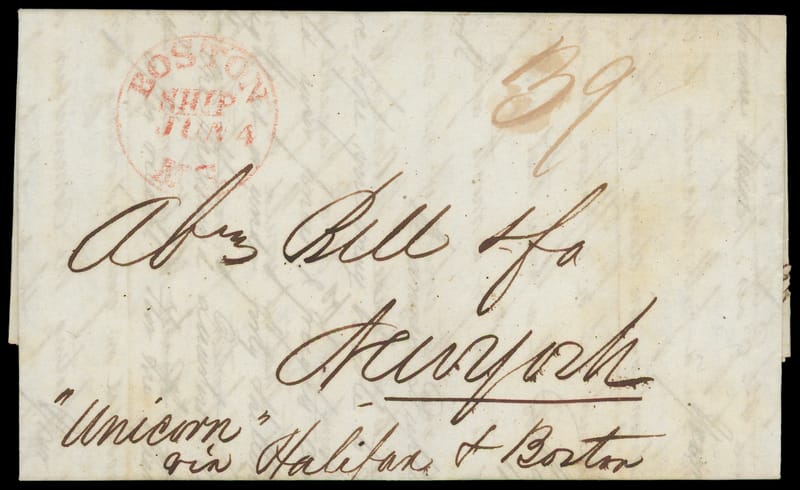 BOSTON
SHIP
JUN 4
39
Abm Bell & Co
New York
"Unicorn"
via Halifax & Boston